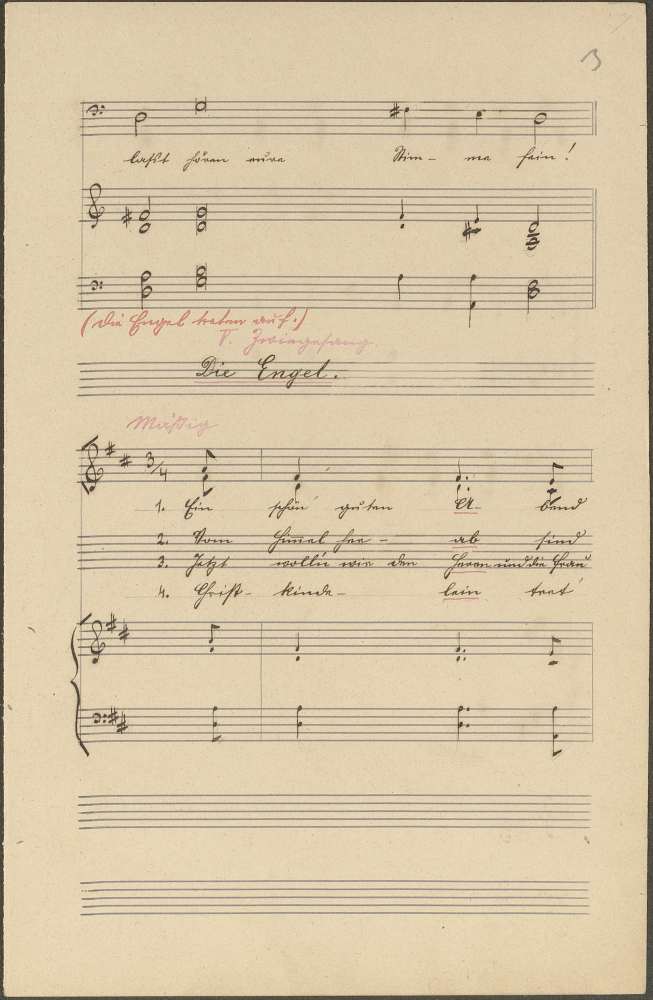 3
lasst hören eure Stim- me fein!
(Die Engel treten auf.)
V. Zwiegesang.
Die Engel.
Mäßig
3/4
1. Ein schön' guten A- bend
2. Vom Himmel her- ab sind
3. Jetzt woll'n wir den Herrn und die Frau
4. Christ- kinde- lein tret'